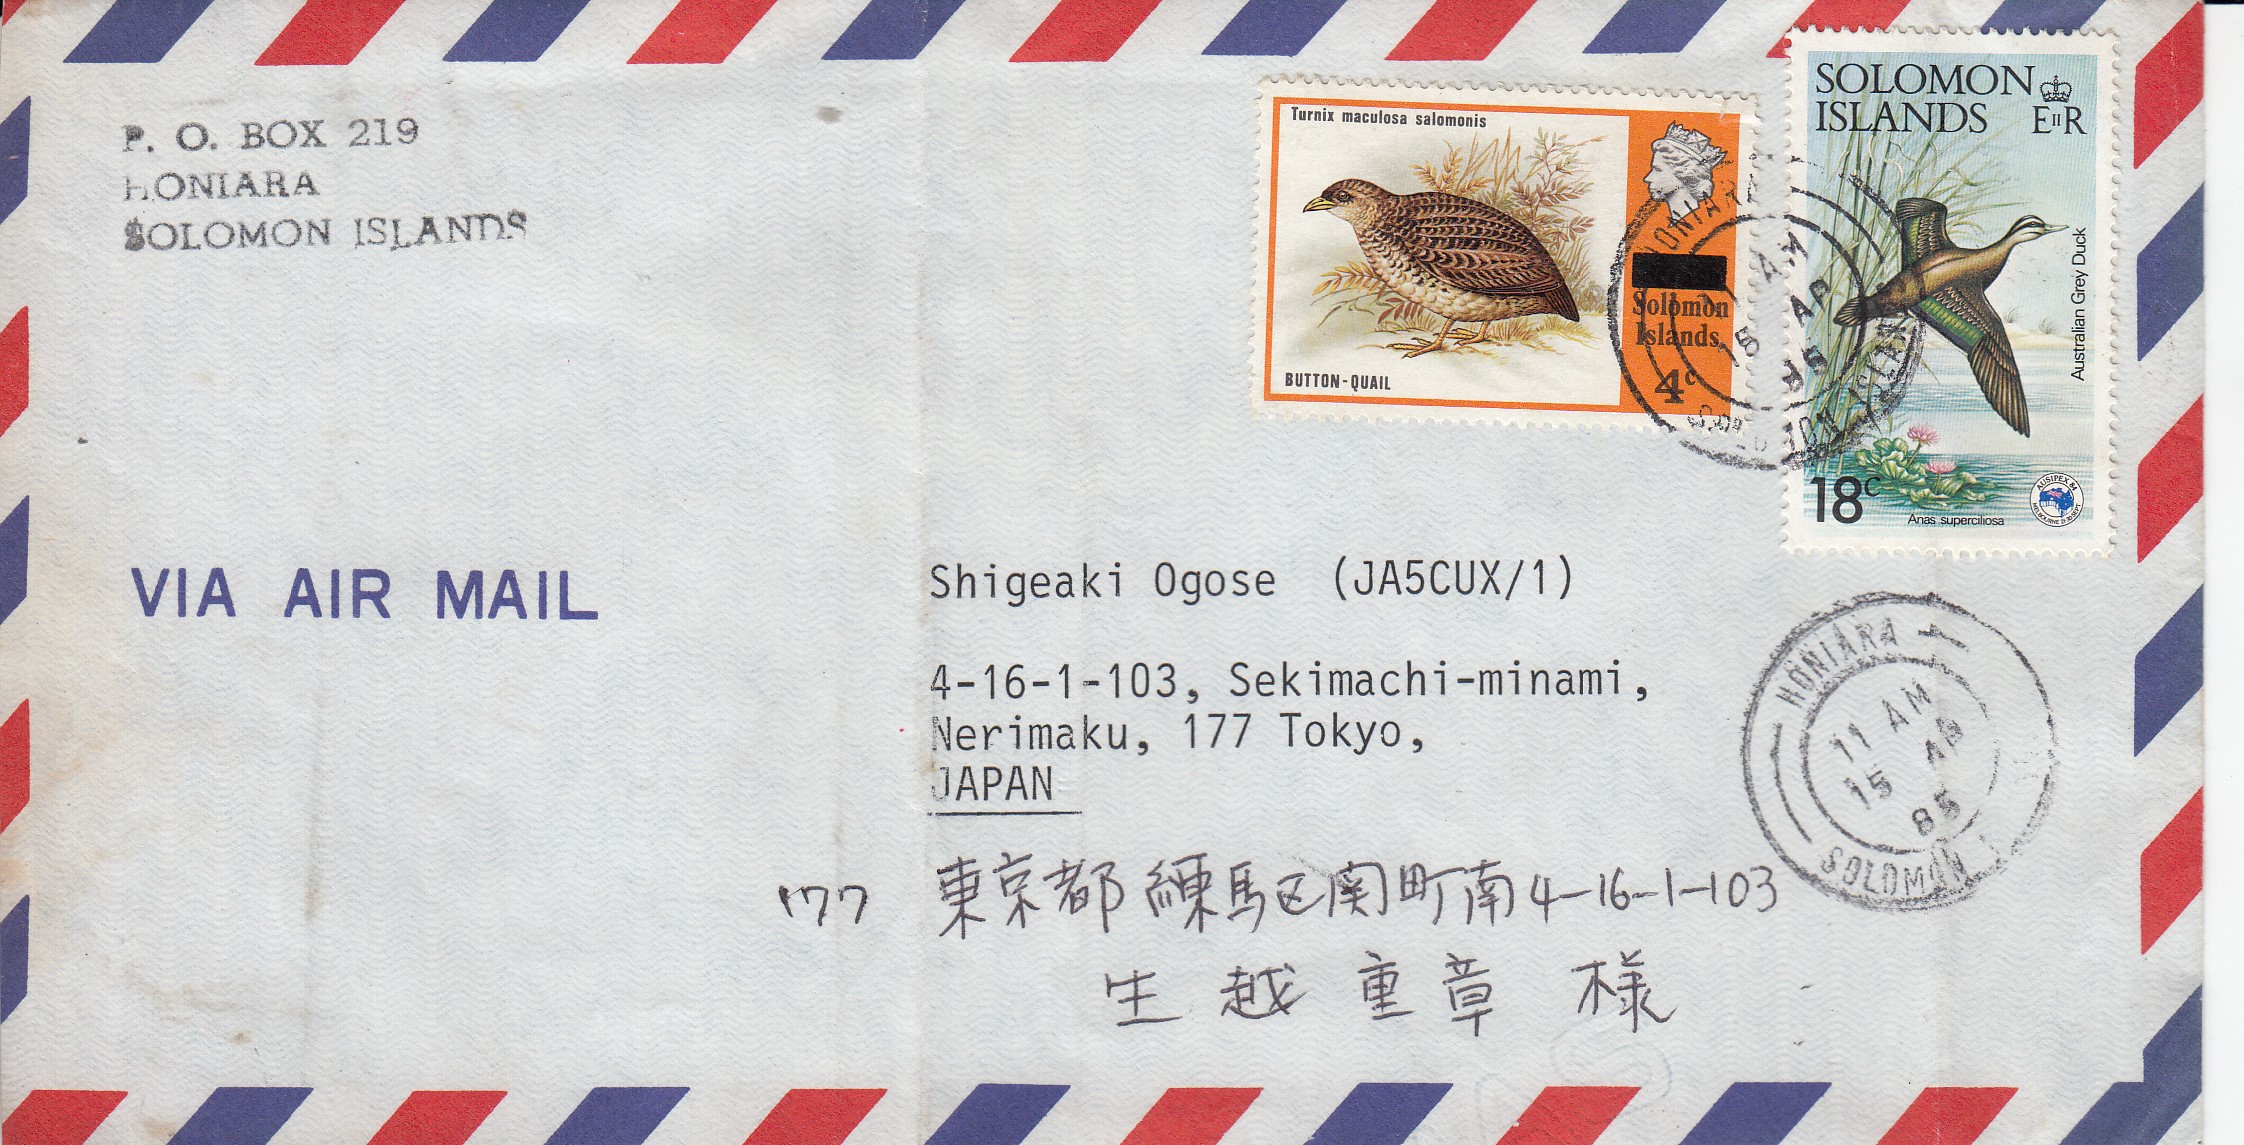 P. O. BOX 219
HONIARA
SOLOMON ISLANDS
Turnix maculosa salomonis
Solomon
Islands
4c
BUTTON-QUAIL
SOLOMON
ISLANDS
EIIR
Australian Grey Duck
18c
Anas superciliosa
AUSIPEX 84
MELBOURNE 21-30 SEPT
HONIARA
AM
15 AP
85
SOLOMON ISLAN
VIA AIR MAIL
Shigeaki Ogose (JA5CUX/1)
4-16-1-103, Sekimachi-minami,
Nerimaku, 177 Tokyo,
JAPAN
HONIARA
11 AM
15 AP
85
SOLOMON I
177 東京都練馬区関町南4-16-1-103
生越重章様